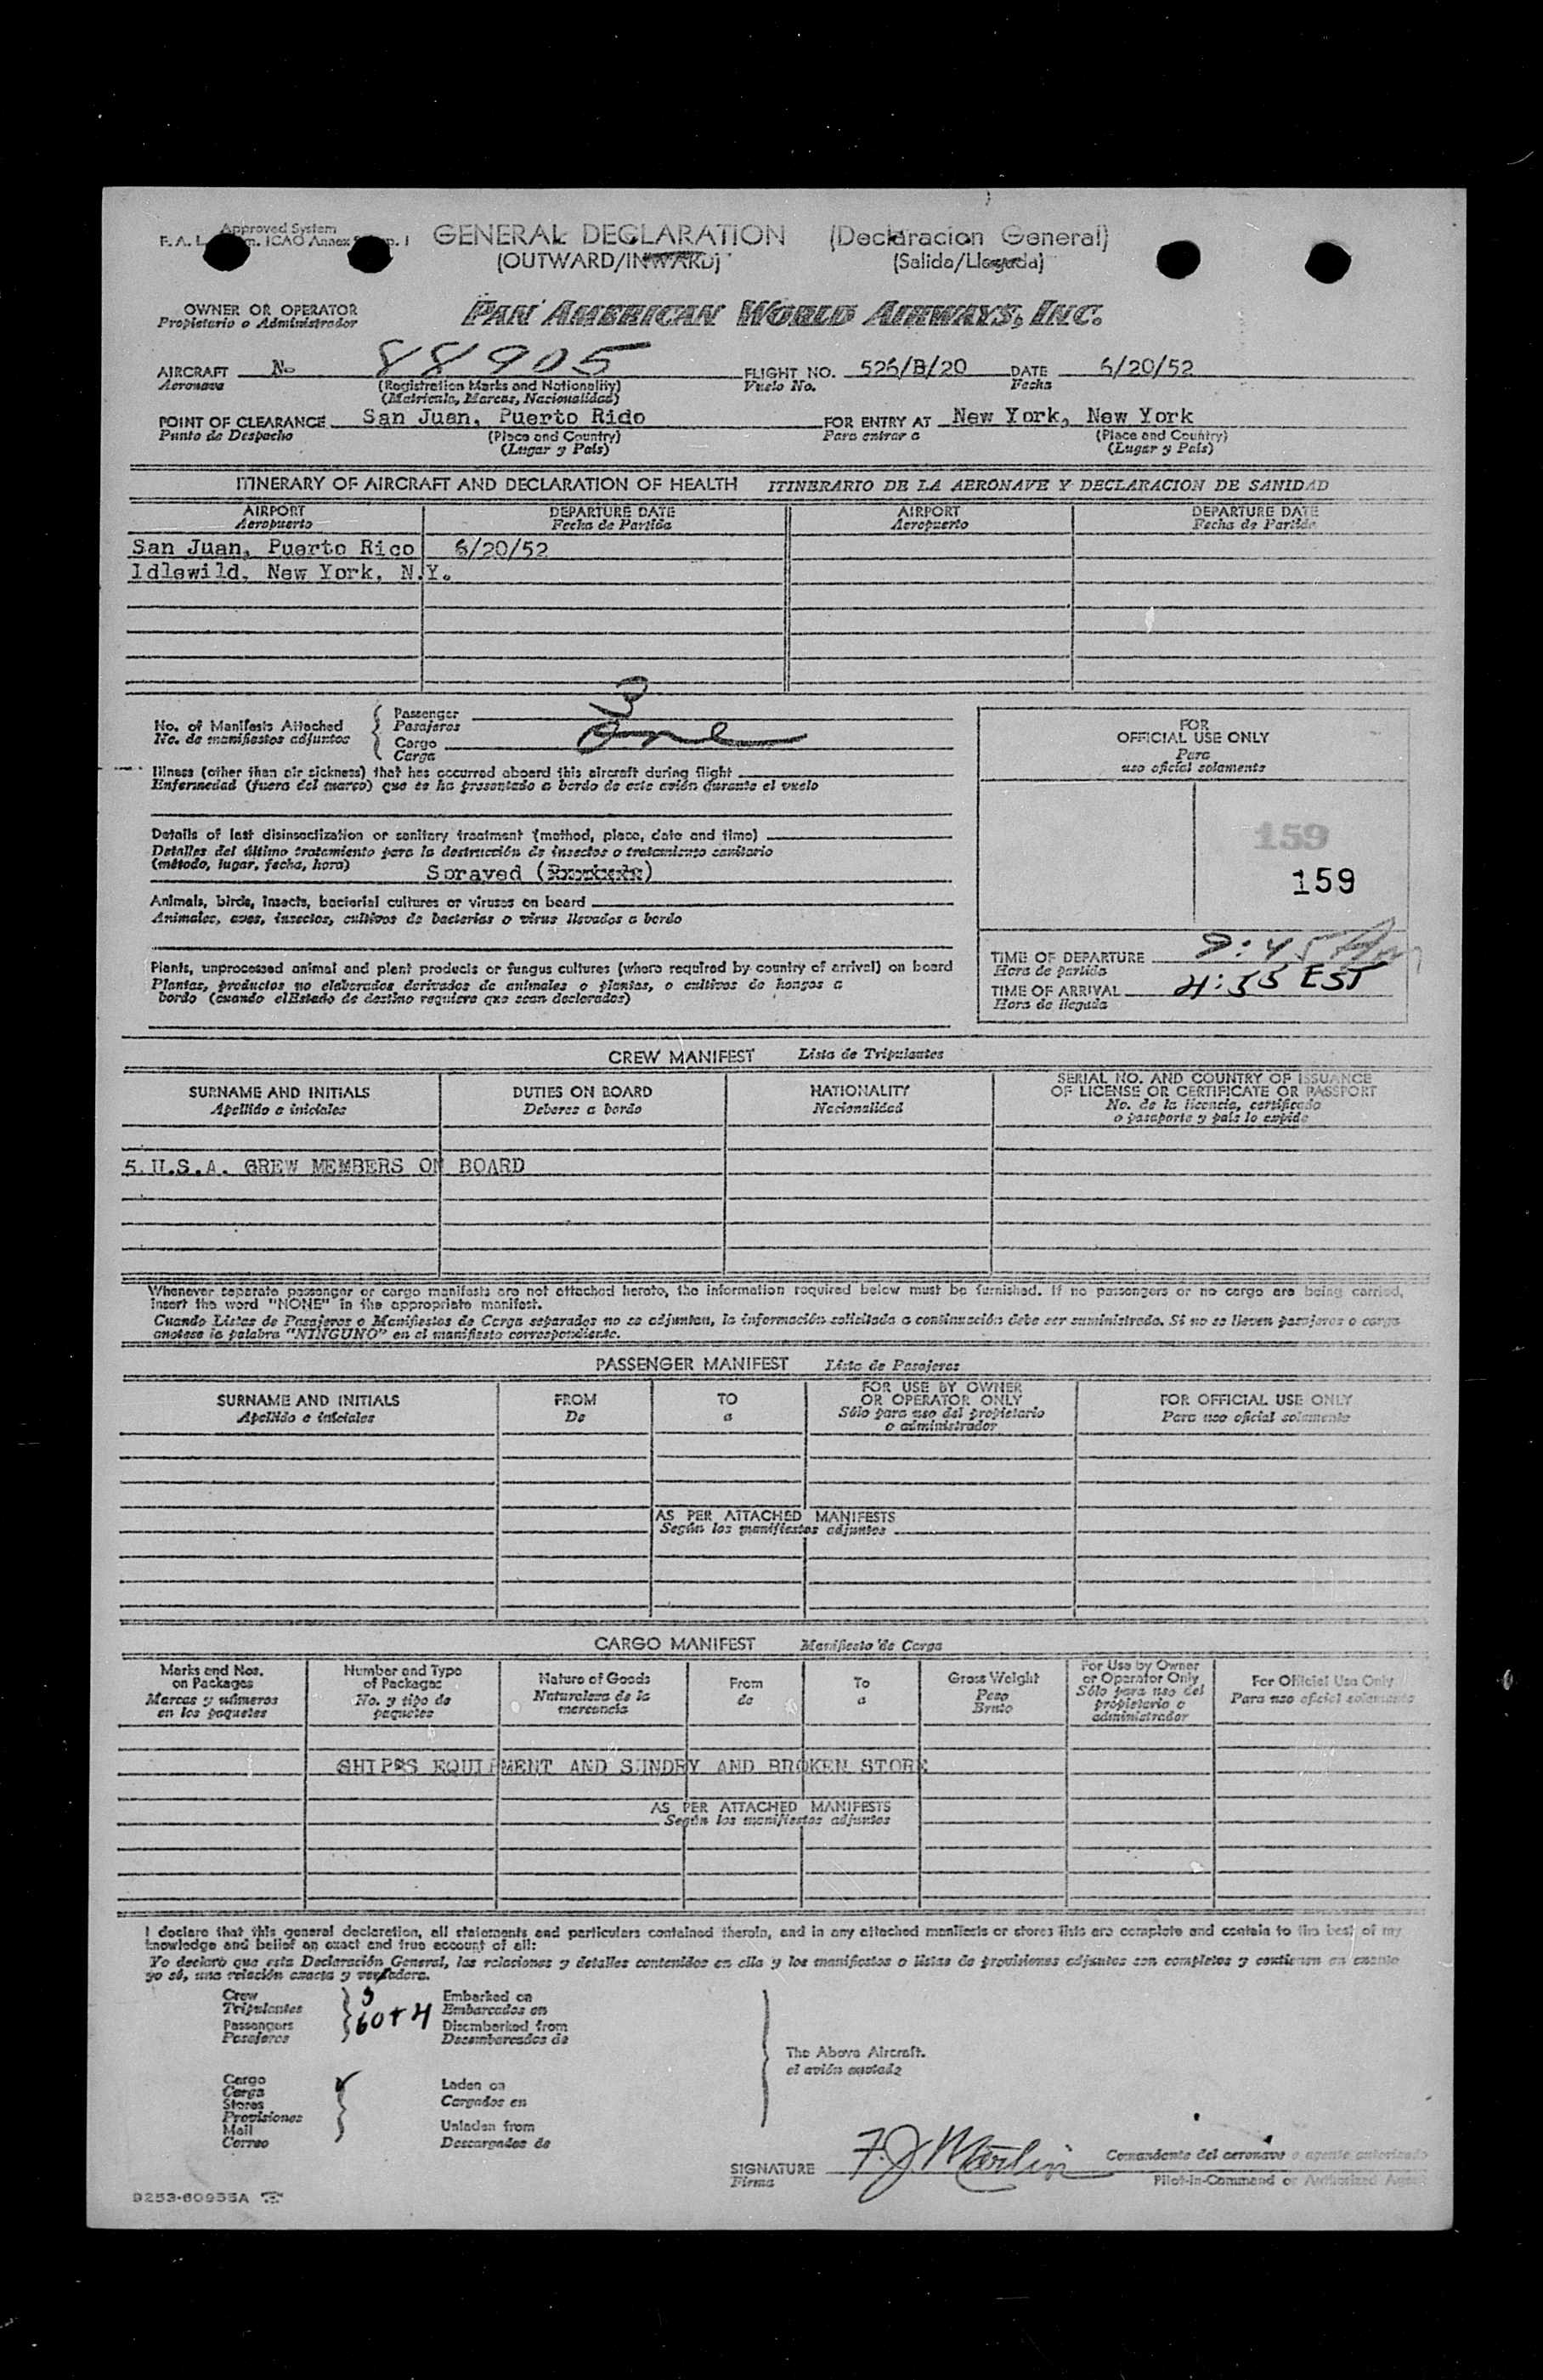 Approved System
GENERAL DECLARATION (Declaracion General)
(OUTWARD/INWARD) (Salida/Llegada)
OWNER OR OPERATOR PAN AMERICAN WORLD AIRWAYS, INC.
Propietario o Administrador
AIRCRAFT No 88905 FLIGHT NO. 526/B/20 DATE 6/20/52
Aeronave (Registration Marks and Nationality) Vuelo No. Fecha
(Matricula, Marcas, Nacionalidad)
POINT OF CLEARANCE San Juan, Puerto Rido FOR ENTRY AT New York, New York
Punto de Despacho (Place and Country) Para entrar a (Place and Country)
(Lugar y País) (Lugar y País)
ITINERARY OF AIRCRAFT AND DECLARATION OF HEALTH ITINERARIO DE LA AERONAVE Y DECLARACION DE SANIDAD
AIRPORT DEPARTURE DATE AIRPORT DEPARTURE DATE
Aeropuerto Fecha de Partida Aeropuerto Fecha de Partida
San Juan, Puerto Rico 6/20/52
Idlewild, New York, N.Y.
No. of Manifests Attached Passenger 3
No. de manifiestos adjuntos Pasajeros
Cargo One
Carga
FOR
OFFICIAL USE ONLY
Para
uso oficial solamente
Illness (other than air sickness) that has occurred aboard this aircraft during flight
Enfermedad (fuera del mareo) que se ha presentado a bordo de este avión durante el vuelo
Details of last disinsectization or sanitary treatment (method, place, date and time)
Detalles del último tratamiento para la destrucción de insectos o tratamiento sanitario
(método, lugar, fecha, hora) Sprayed
159
159
Animals, birds, insects, bacterial cultures or viruses on board
Animales, aves, insectos, cultivos de bacterias o virus llevados a bordo
Plants, unprocessed animal and plant products or fungus cultures (where required by country of arrival) on board
Plantas, productos no elaborados derivados de animales o plantas, o cultivos de hongos a
bordo (cuando elEstado de destino requiera que sean declarados)
TIME OF DEPARTURE
Hora de partida
TIME OF ARRIVAL 4:55 EST
Hora de llegada
CREW MANIFEST Lista de Tripulantes
SURNAME AND INITIALS DUTIES ON BOARD NATIONALITY SERIAL NO. AND COUNTRY OF ISSUANCE
OF LICENSE OR CERTIFICATE OR PASSPORT
Apellido e iniciales Deberes a bordo Nacionalidad No. de la licencia, certificado
o pasaporte y país lo expide
5.U.S.A. CREW MEMBERS ON BOARD
Whenever separate passenger or cargo manifests are not attached hereto, the information required below must be furnished. If no passengers or no cargo are being carried,
insert the word "NONE" in the appropriate manifest.
Cuando Listas de Pasajeros o Manifiestos de Carga separados no se adjuntan, la información solicitada a continuación debe ser suministrada. Si no se lleven pasajeros o carga
anotese la palabra "NINGUNO" en el manifiesto correspondiente.
PASSENGER MANIFEST Lista de Pasajeros
SURNAME AND INITIALS FROM TO FOR USE BY OWNER FOR OFFICIAL USE ONLY
OR OPERATOR ONLY
Apellido e iniciales De a Sólo para uso del propietario Para uso oficial solamente
o administrador
AS PER ATTACHED MANIFESTS
Según los manifiestos adjuntos
CARGO MANIFEST Manifiesto de Carga
Marks and Nos. Number and Type Nature of Goods From To Gross Weight For Use by Owner For Official Use Only
on Packages of Packages or Operator Only
Marcas y números No. y tipo de Naturaleza de la de a Peso Sólo para uso del Para uso oficial solamente
en los paquetes paquetes mercancía Bruto propietario o
administrador
SHIPS EQUIPMENT AND SUNDRY AND BROKEN STORE
AS PER ATTACHED MANIFESTS
Según los manifiestos adjuntos
I declare that this general declaration, all statements and particulars contained therein, and in any attached manifests or stores lists are complete and contain to the best of my
knowledge and belief an exact and true account of all:
Yo declaro que esta Declaración General, las relaciones y detalles contenidos en ella y los manifiestos o listas de provisiones adjuntos son completos y contienen en cuanto
yo sé, una relación exacta y verdadera.
Crew 5 Embarked on
Tripulantes Embarcados en
Passengers 60+4 Disembarked from
Pasajeros Desembarcados de
The Above Aircraft.
el avión anotada
Cargo Laden on
Carga Cargados en
Stores
Provisiones
Mail Unladen from
Correo Descargados de
SIGNATURE F. J. Martin Comandante del aeronave o agente autorizado
Firma Pilot-in-Command or Authorized Agent
9253-60955A